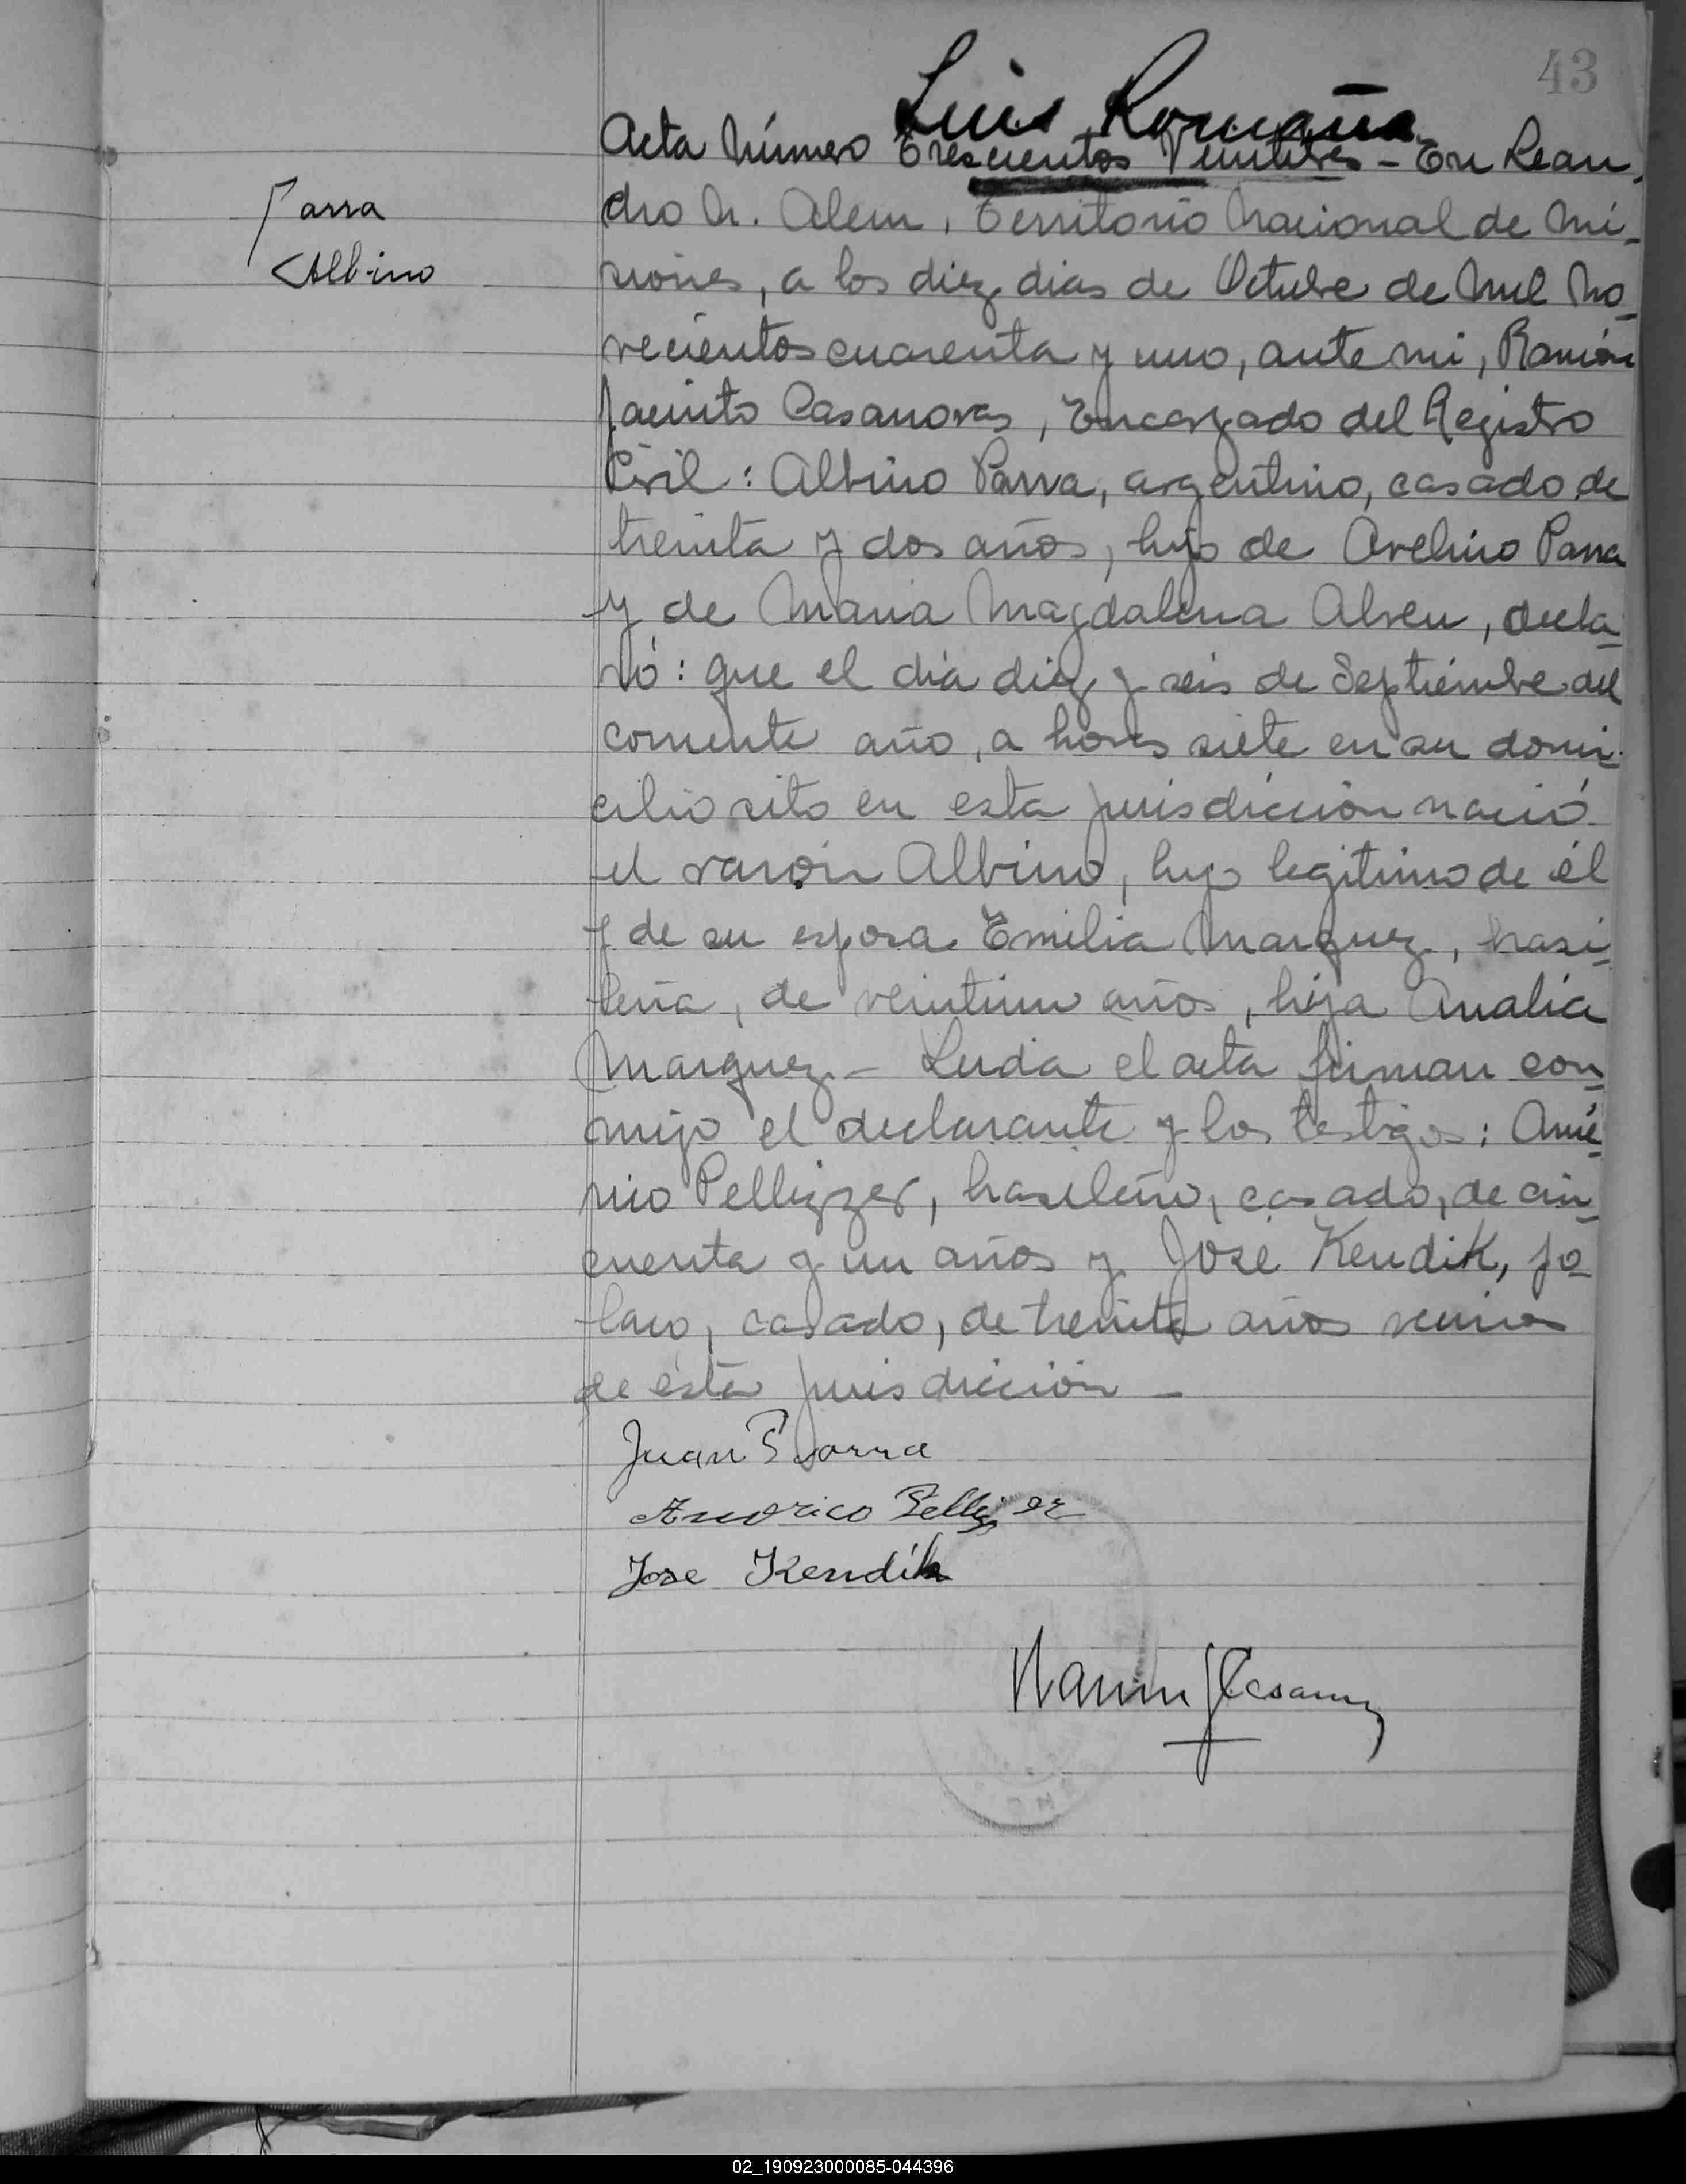 43
Luis Romaña
Acta Número Trescientos Veintitres - En Lean-
Parra
Albino
dro N. Alem, Territorio Nacional de Mi-
siones, a los diez dias de Octubre de Mil No-
vecientos cuarenta y uno, ante mi, Ramón
Jacinto Casanovas, Encargado del Registro
Civil: Albino Parra, argentino, casado de
treinta y dos años, hijo de Avelino Parra
y de Maria Magdalena Alveu, decla-
ró: que el día diez y seis de Septiembre del
corriente año, a horas siete en su domi-
cilio sito en esta jurisdicción nació
el varón Albino, hijo legitimo de él
y de su esposa Emilia Marquez, brasi-
leña, de veintiun años, hija Analia
Marquez - Leida el acta firman con-
migo el declarante y los testigos: Amé-
rico Pellizzer, brasileño, casado, de cin-
cuenta y un años y José Kendik, po-
laco, casado, de treinta años vecinos
de ésta jurisdicción -
Juan Parra
Americo Pellizer
Jose Kendik
Ramón J Casanovas
02_190923000085-044396